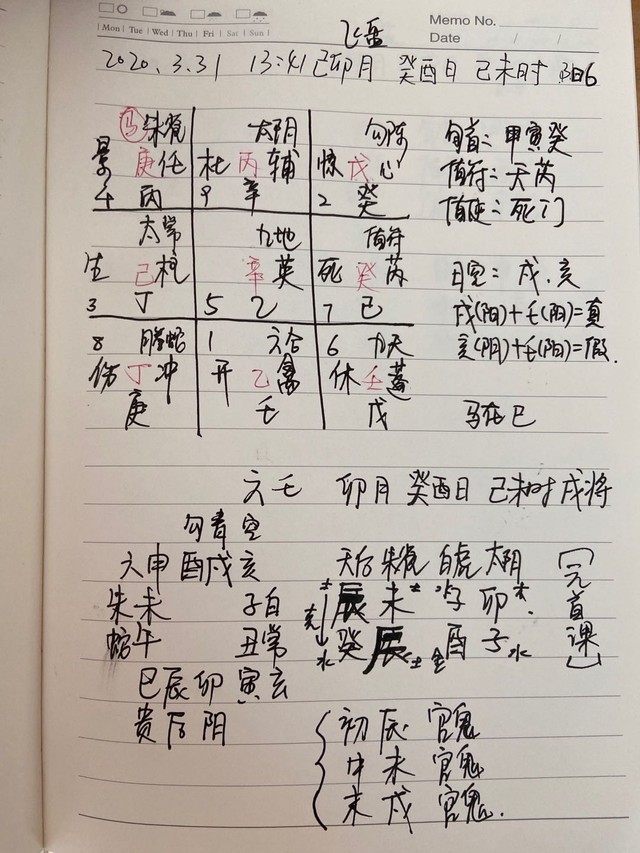 Memo No.
Mon Tue Wed Thu Fri Sat Sun
Date
飞盘
2020.3.31 13:41 己卯月 癸酉日 己未时 阳6
马 朱雀 太阴 勾陈
景 庚任 杜 丙辅 惊 戊心
4 丙 9 辛 2 癸
太常 九地 值符
生 己柱 辛英 死 癸芮
3 丁 5 乙 7 己
8 螣蛇 1 六合 6 九天
伤 丁冲 开 乙禽 休 壬蓬
庚 壬 戊
旬首:甲寅癸
值符:天芮
值使:死门
日空:戌、亥
戌(阳)+壬(阳)=真
亥(阴)+壬(阳)=假
马在巳
六壬 卯月 癸酉日 己未时 戌将
勾 青 空
六申 酉 戌 亥
朱未 子白
蛇午 丑常
巳 辰 卯 寅玄
贵 后 阴
天后 朱雀 白虎 太阴
土 辰 未土 子 卯木
克 水 癸 辰土 酉金 子水
[元首课]
初 辰 官鬼
中 未 官鬼
末 戌 官鬼.